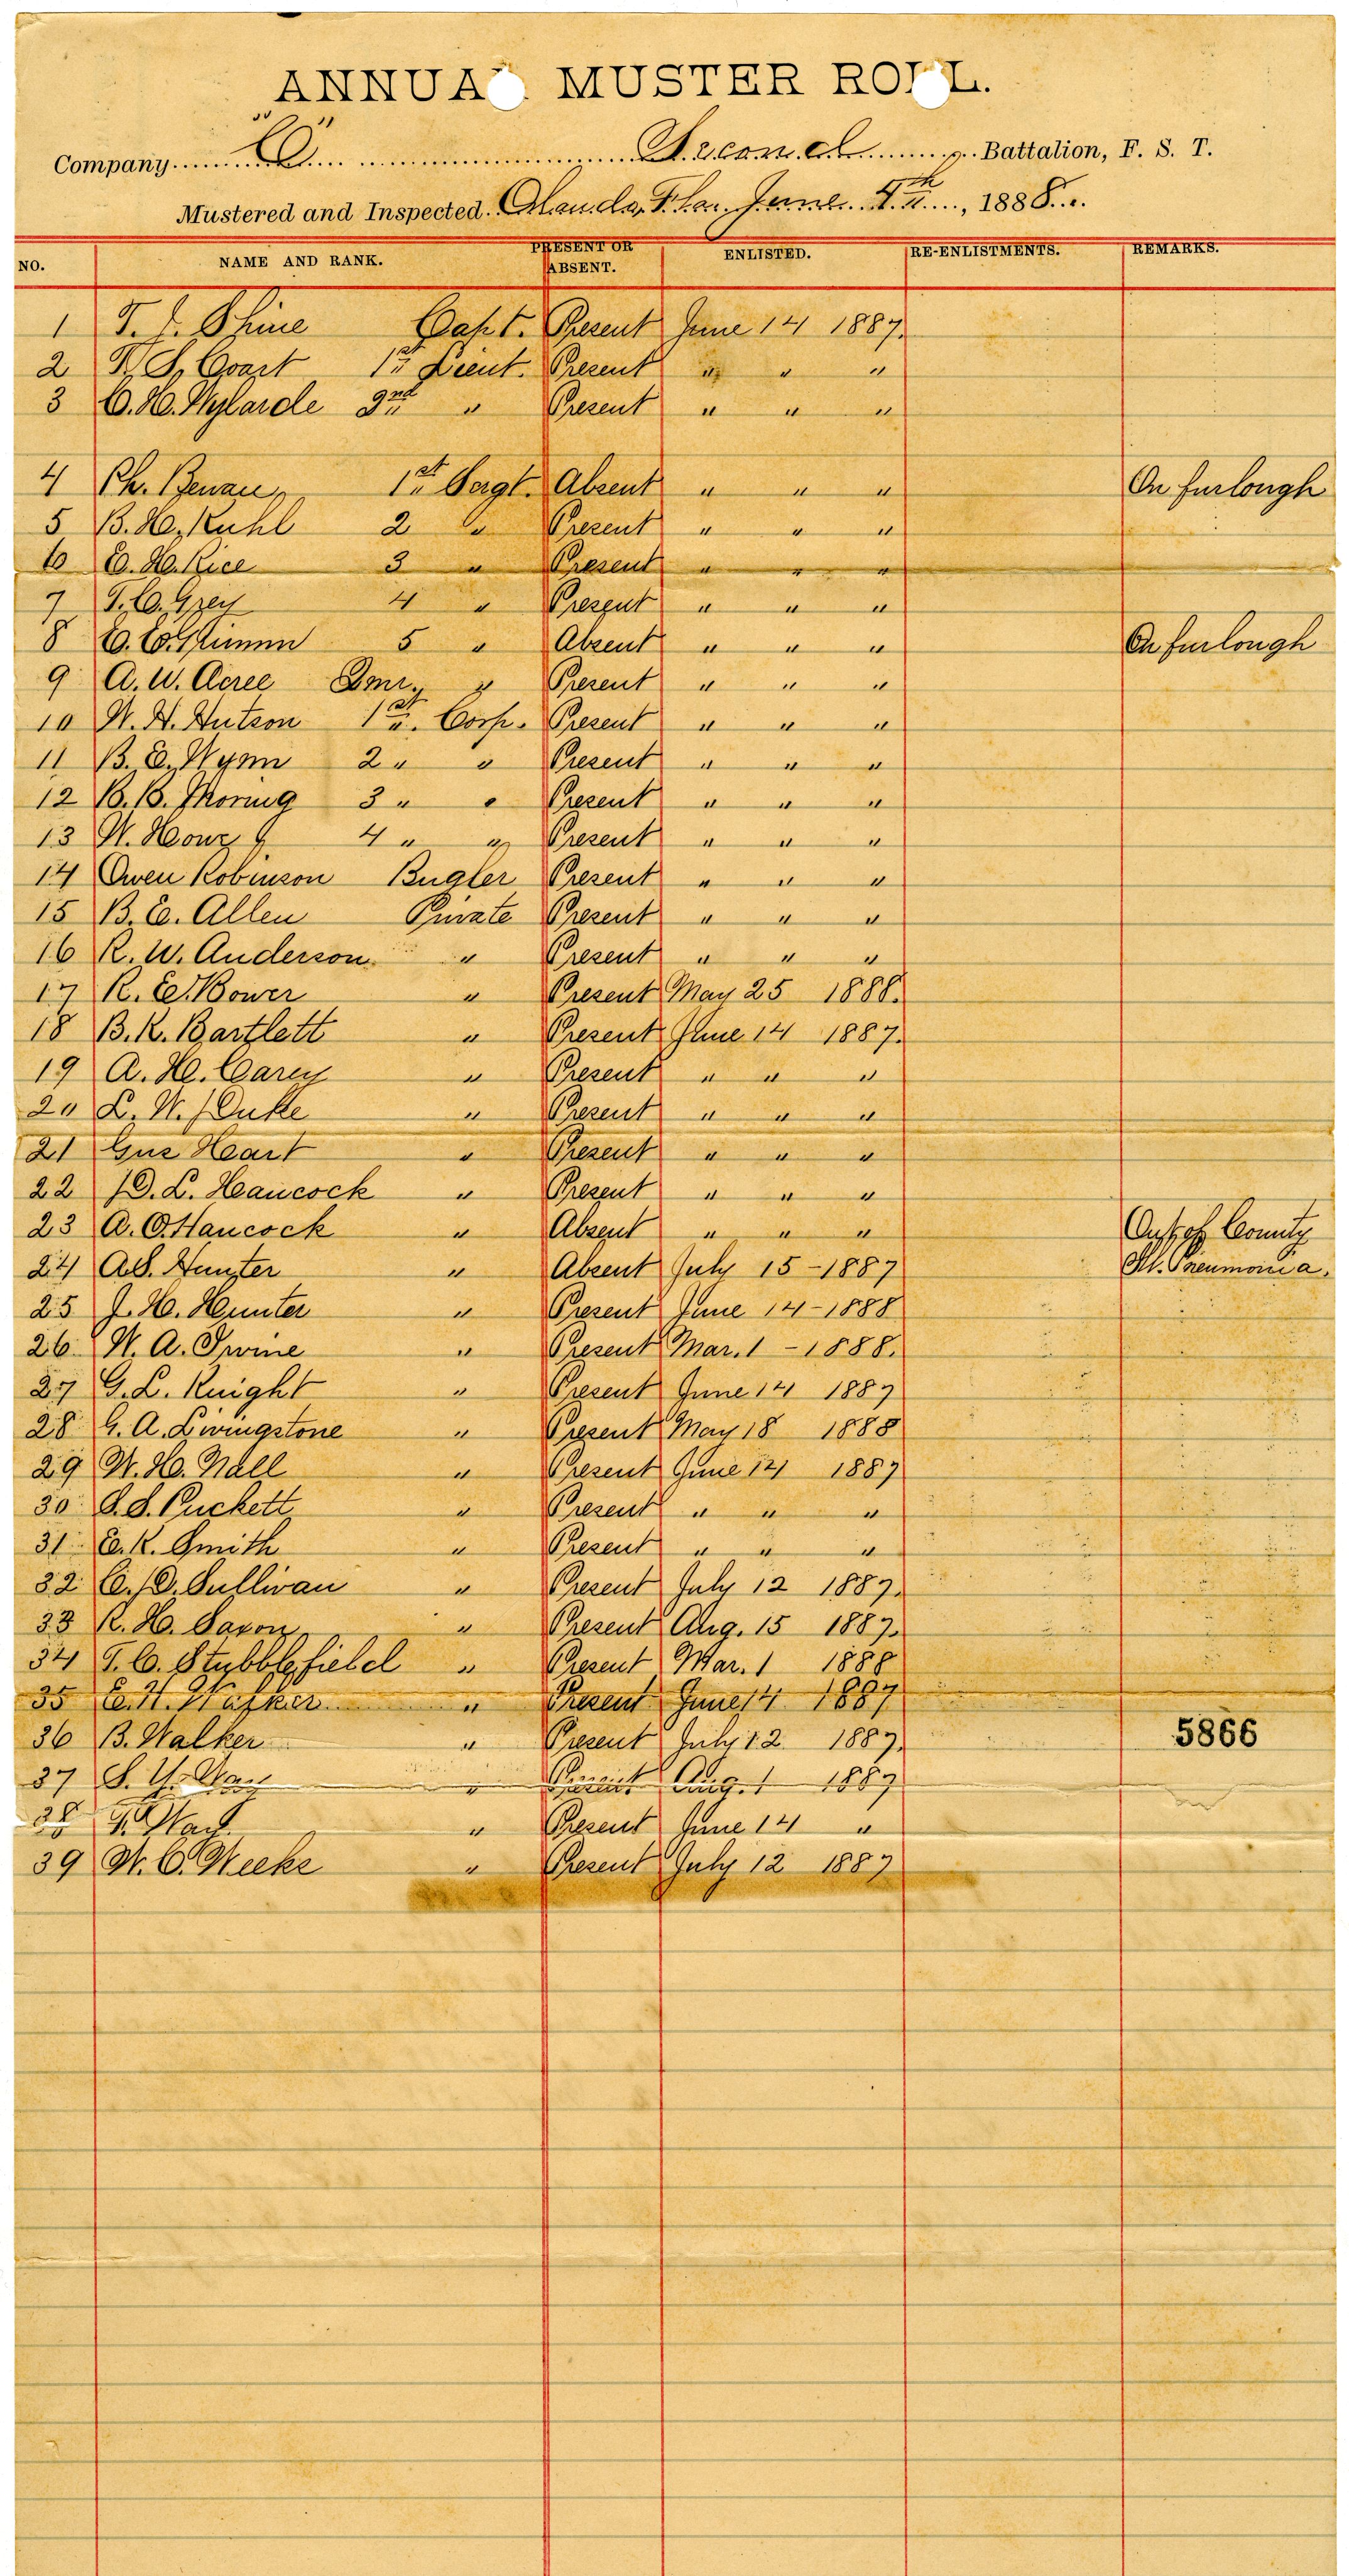 ANNUAL MUSTER ROLL.
Company "C" Second Battalion, F. S. T.
Mustered and Inspected Orlando, Fla. June 4th, 1888.
NO. NAME AND RANK. PRESENT OR ABSENT. ENLISTED. RE-ENLISTMENTS. REMARKS.
1 T. J. Shine Capt. Present June 14 1887.
2 1st Lieut. Present " " "
3 C. H. Wylarde 2nd " Present " " "
4 1st Sergt. Absent " " " On furlough
5 B. H. Kuhl 2 " Present " " "
6 E. H. Rice 3 " Present " " "
7 T. C. Grey 4 " Present " " "
8 5 " Absent " " " On furlough
9 A. W. Acree " Present " " "
10 W. H. Hutson 1st " Corp. Present " " "
11 B. E. Wynn 2 " " Present " " "
12 B. B. Thoring 3 " " Present " " "
13 W. 4 " " Present " " "
14 Owen Robinson Bugler Present " " "
15 B. E. Allen Private Present " " "
16 R. W. Anderson " Present " " "
17 R. E. Bower " Present May 25 1888.
18 B. R. Bartlett " Present June 14 1887.
19 A. H. Carey " Present " " "
20 L. W. Duke " Present " " "
21 Gus Heart " Present " " "
22 D. L. Hancock " Present " " "
23 A. O. Hancock " Absent " " " Out of County
24 A. S. Hunter " Absent July 15-1887 Pneumonia.
25 J. H. Hunter " Present June 14-1888
26 W. A. Irvine " Present Mar. 1 - 1888.
27 G. L. Knight " Present June 14 1887
28 G. A. Livingstone " Present May 18 1888
29 W. H. Nall " Present June 14 1887
30 S. S. Puckett " Present " " "
31 E. R. Smith " Present " " "
32 C. D. Sullivan " Present July 12 1887.
33 R. H. Saxon " Present Aug. 15 1887.
34 T. C. Stubblefiebel " Present Mar. 1 1888
35 " Present June 14 1887
36 B. Walker " Present July 12 1887.
5866
37 S. Y. Way " Present Aug. 1 1887
38 Way " Present June 14 "
39 W. C. Weeks " Present July 12 1887